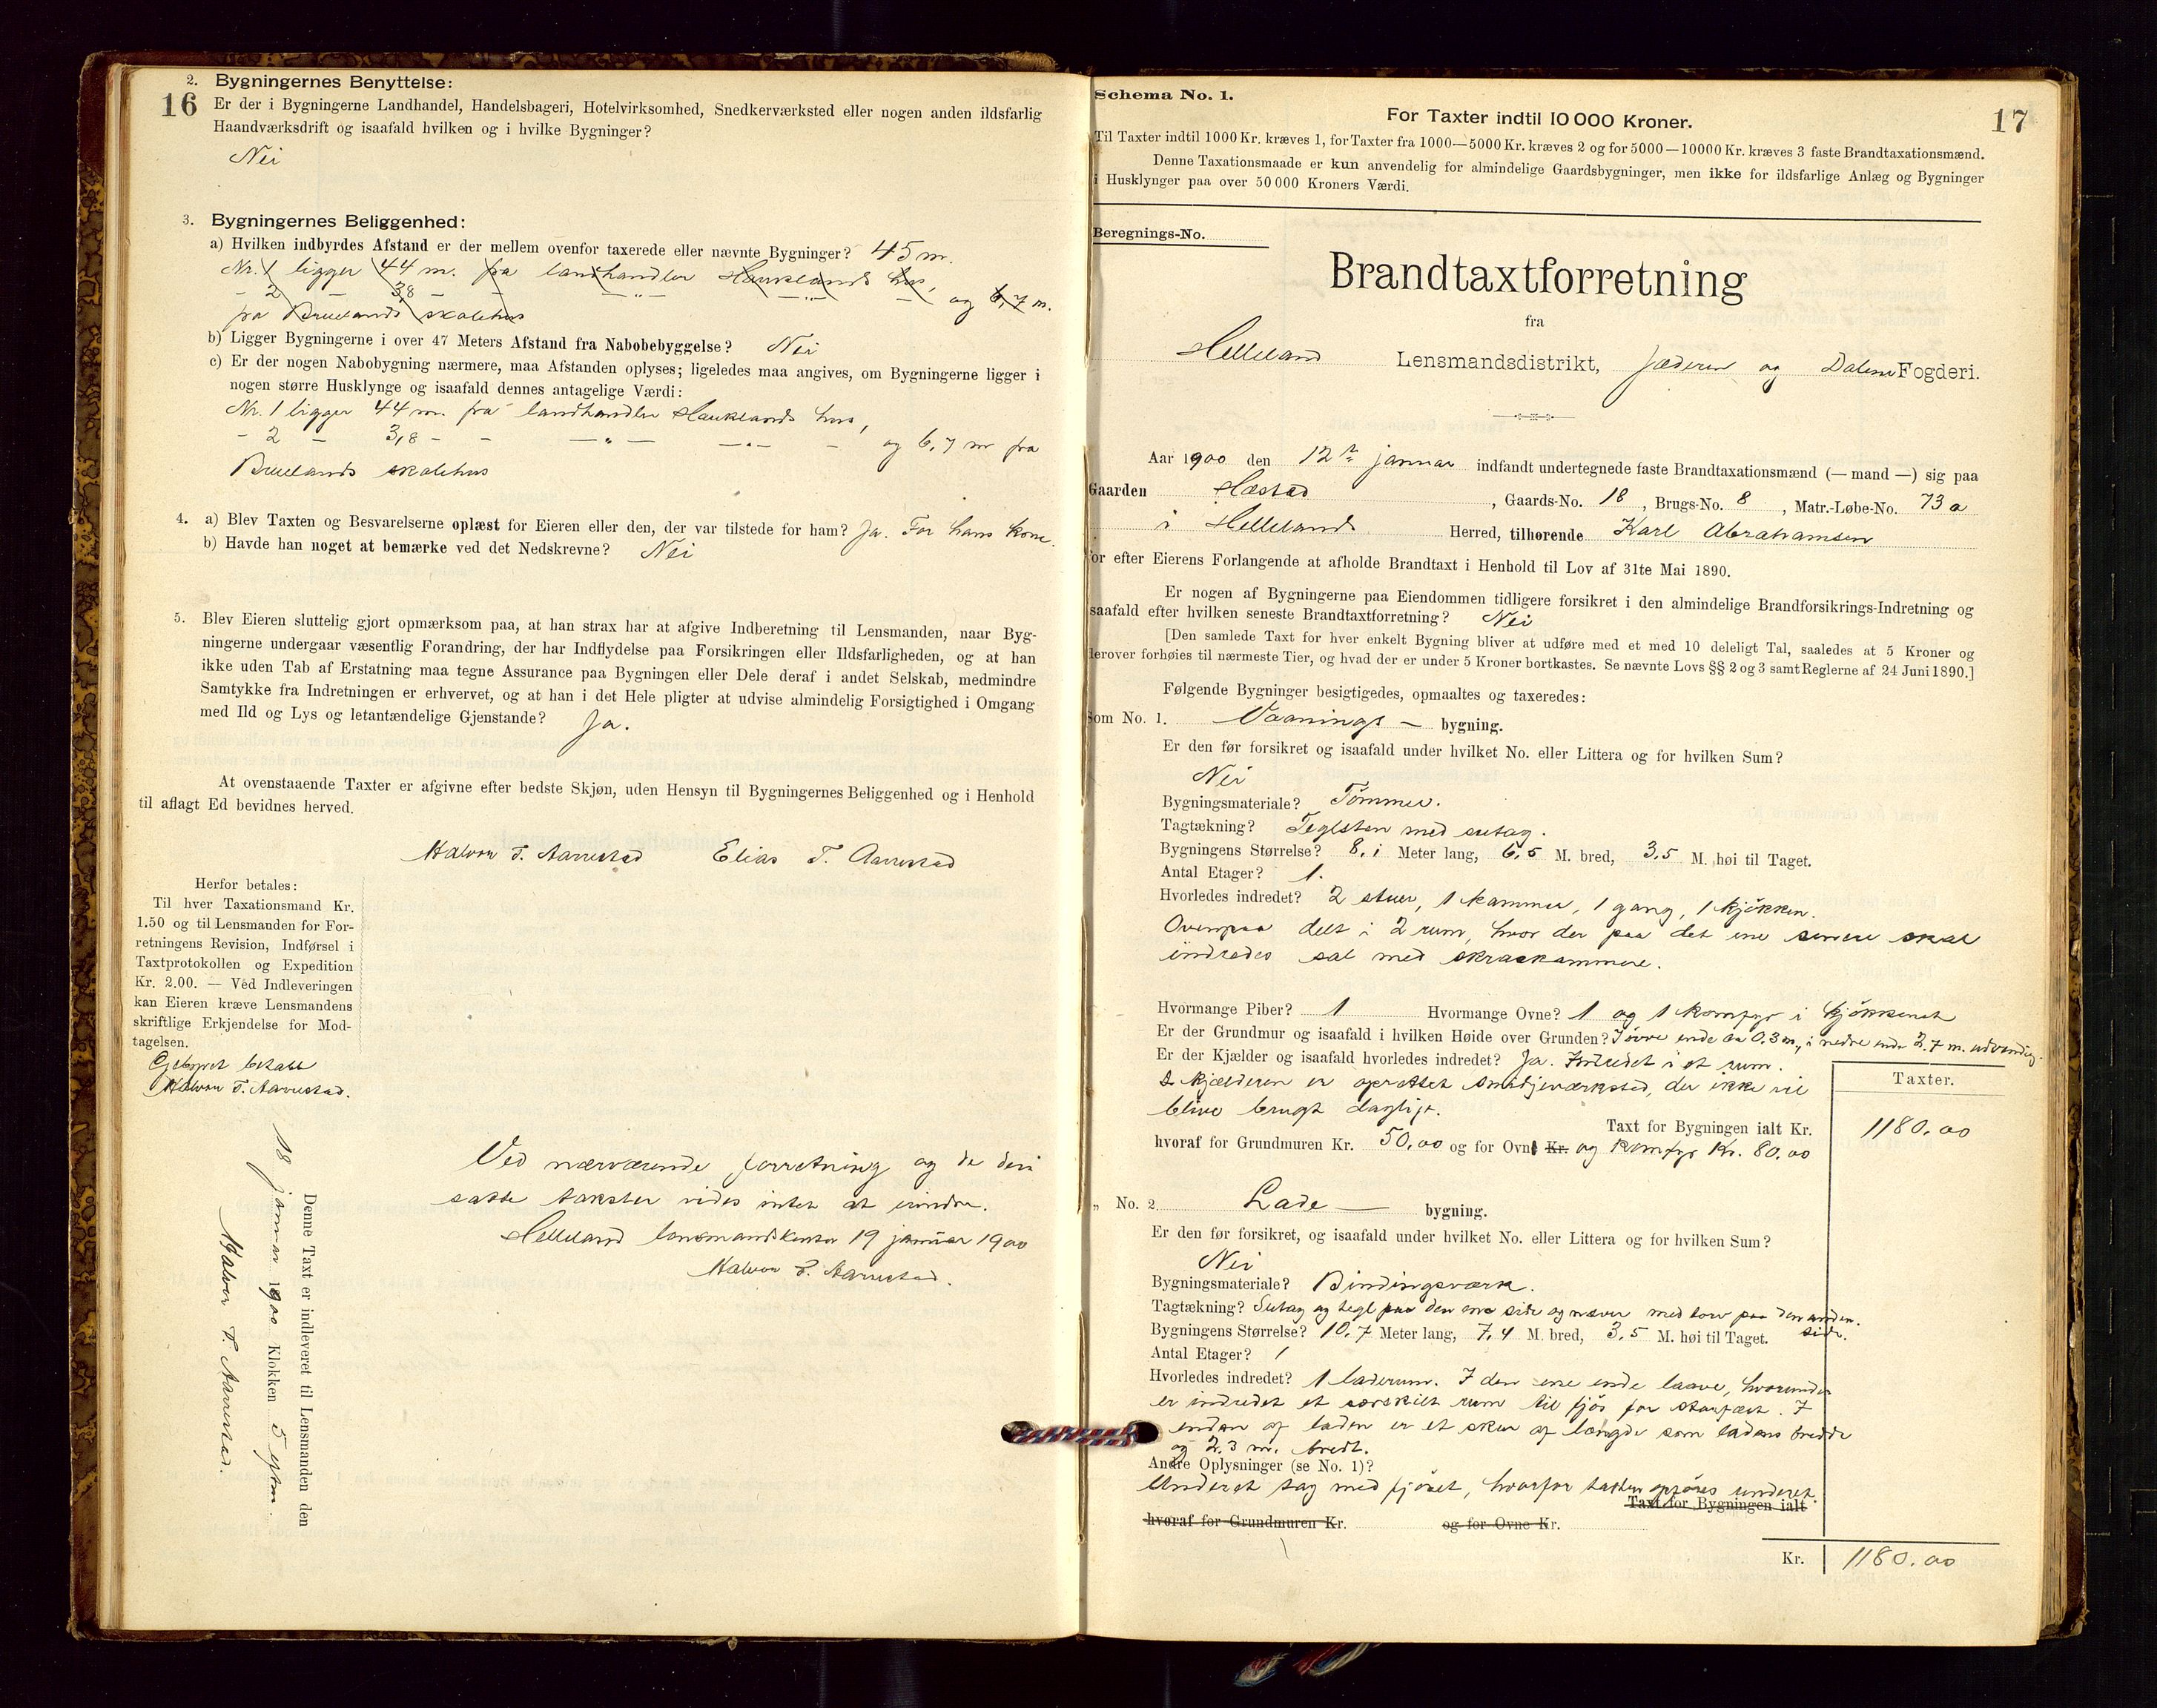 2. Bygningernes Benyttelse:
16 Er der i Bygningerne Landhandel, Handelsbageri, Hotelvirksomhed, Snedkerværksted eller nogen anden ildsfarlig
Haandværksdrift og isaafald hvilken og i hvilke Bygninger?
Nei
3. Bygningernes Beliggenhed:
a) Hvilken indbyrdes Afstand er der mellem ovenfor taxerede eller nævnte Bygninger? 45 m.
Nr. 1 ligger 44 m. fra landhandler Hauklands hus,
- 2 - 38 - - - " - - " - - og 6,7 m.
fra Bruelands skolehus
b) Ligger Bygningerne i over 47 Meters Afstand fra Nabobebyggelse? Nei
c) Er der nogen Nabobygning nærmere, maa Afstanden oplyses; ligeledes maa angives, om Bygningerne ligger i
nogen større Husklynge og isaafald dennes antagelige Værdi:
Nr. 1 ligger 44 m. fra landhandler Hauklands hus,
- 2 - 3,8 - - - " - - " - - og 6,7 m fra
Bruelands skolehus
4. a) Blev Taxten og Besvarelserne oplæst for Eieren eller den, der var tilstede for ham? Ja. For hans kone.
b) Havde han noget at bemærke ved det Nedskrevne? Nei
5. Blev Eieren sluttelig gjort opmærksom paa, at han strax har at afgive Indberetning til Lensmanden, naar Byg-
ningerne undergaar væsentlig Forandring, der har Indflydelse paa Forsikringen eller Ildsfarligheden, og at han
ikke uden Tab af Erstatning maa tegne Assurance paa Bygningen eller Dele deraf i andet Selskab, medmindre
Samtykke fra Indretningen er erhvervet, og at han i det Hele pligter at udvise almindelig Forsigtighed i Omgang
med Ild og Lys og letantændelige Gjenstande? Ja.
At ovenstaaende Taxter er afgivne efter bedste Skjøn, uden Hensyn til Bygningernes Beliggenhed og i Henhold
til aflagt Ed bevidnes herved.
Halvor T. Aarrestad Elias T. Aarrestad
Herfor betales:
Til hver Taxationsmand Kr.
1.50 og til Lensmanden for For-
retningens Revision, Indførsel i
Taxtprotokollen og Expedition
Kr. 2.00. — Ved Indleveringen
kan Eieren kræve Lensmandens
skriftlige Erkjendelse for Mod-
tagelsen.
Gebyret betalt
Halvor T. Aarrestad.
Denne Taxt er indleveret til Lensmanden den
18 januar 1900 Klokken 5 eftm.
Halvor T. Aarrestad.
Ved nærværende forretning og de deri
satte takster vides intet at erindre.
Helleland lensmandskontor 19 januar 1900
Halvor T. Aarrestad.
Schema No. 1.
17
For Taxter indtil 10 000 Kroner.
Til Taxter indtil 1000 Kr. kræves 1, for Taxter fra 1000—5000 Kr. kræves 2 og for 5000—10000 Kr. kræves 3 faste Brandtaxationsmænd.
Denne Taxationsmaade er kun anvendelig for almindelige Gaardsbygninger, men ikke for ildsfarlige Anlæg og Bygninger
i Husklynger paa over 50 000 Kroners Værdi.
Beregnings-No.
Brandtaxtforretning
fra
Helleland Lensmandsdistrikt, Jæderen og Dalene Fogderi.
Aar 1900 den 12te januar indfandt undertegnede faste Brandtaxationsmænd (— mand —) sig paa
Gaarden Hæstad, Gaards-No. 18, Brugs-No. 8, Matr.-Løbe-No. 73 a
i Hellelands Herred, tilhørende Karl Abrahamsen
for efter Eierens Forlangende at afholde Brandtaxt i Henhold til Lov af 31te Mai 1890.
Er nogen af Bygningerne paa Eiendommen tidligere forsikret i den almindelige Brandforsikrings-Indretning og
saafald efter hvilken seneste Brandtaxtforretning? Nei
[Den samlede Taxt for hver enkelt Bygning bliver at udføre med et med 10 deleligt Tal, saaledes at 5 Kroner og
derover forhøies til nærmeste Tier, og hvad der er under 5 Kroner bortkastes. Se nævnte Lovs §§ 2 og 3 samt Reglerne af 24 Juni 1890.]
Følgende Bygninger besigtigedes, opmaaltes og taxeredes:
Som No. 1. Vaanings — bygning.
Er den før forsikret og isaafald under hvilket No. eller Littera og for hvilken Sum?
Nei
Bygningsmateriale? Tømmer.
Tagtækning? Teglsten med sutag.
Bygningens Størrelse? 8,1 Meter lang, 6,5 M. bred, 3,5 M. høi til Taget.
Antal Etager? 1.
Hvorledes indredet? 2 stuer, 1 kammer, 1 gang, 1 kjøkken.
Ovenpaa delt i 2 rum, hvor der paa det ene senere skal
indredes sal med skraakammere.
Hvormange Piber? 1 Hvormange Ovne? 1 og 1 komfyr i kjøkkenet
Er der Grundmur og isaafald i hvilken Høide over Grunden? I øvre ende ca 0.3 m., i nedre ende 2.7 m. udvendig.
Er der Kjælder og isaafald hvorledes indredet? Ja. Indredet i et rum.
I kjælderen er oprettet smidjeværksted, der ikke vil
blive brugt dagligt.
Taxter.
Taxt for Bygningen ialt Kr. 1180.00
hvoraf for Grundmuren Kr. 50,00 og for Ovne Kr. og komfyr Kr. 80.00
" No. 2. Lade — bygning.
Er den før forsikret, og isaafald under hvilket No. eller Littera og for hvilken Sum?
Nei
Bygningsmateriale? Bindingsværk.
Tagtækning? Sutag og tegl paa den ene side og næver med torv paa den anden
side.
Bygningens Størrelse? 10,7 Meter lang, 7,4 M. bred, 3,5 M. høi til Taget.
Antal Etager? 1
Hvorledes indredet? 1 laderum. I den ene ende laave, hvorunder
er indredet et særskilt rum til fjøs for storfæet. I
enden af laden er et skur af længde som ladens bredde
og 2.3 m. bredt.
Andre Oplysninger (se No. 1)?
Under et tag med fjøset, hvorfor taxten opføres under et.
Taxt for Bygningen ialt
hvoraf for Grundmuren Kr. og for Ovne Kr.
Kr. 1180.00